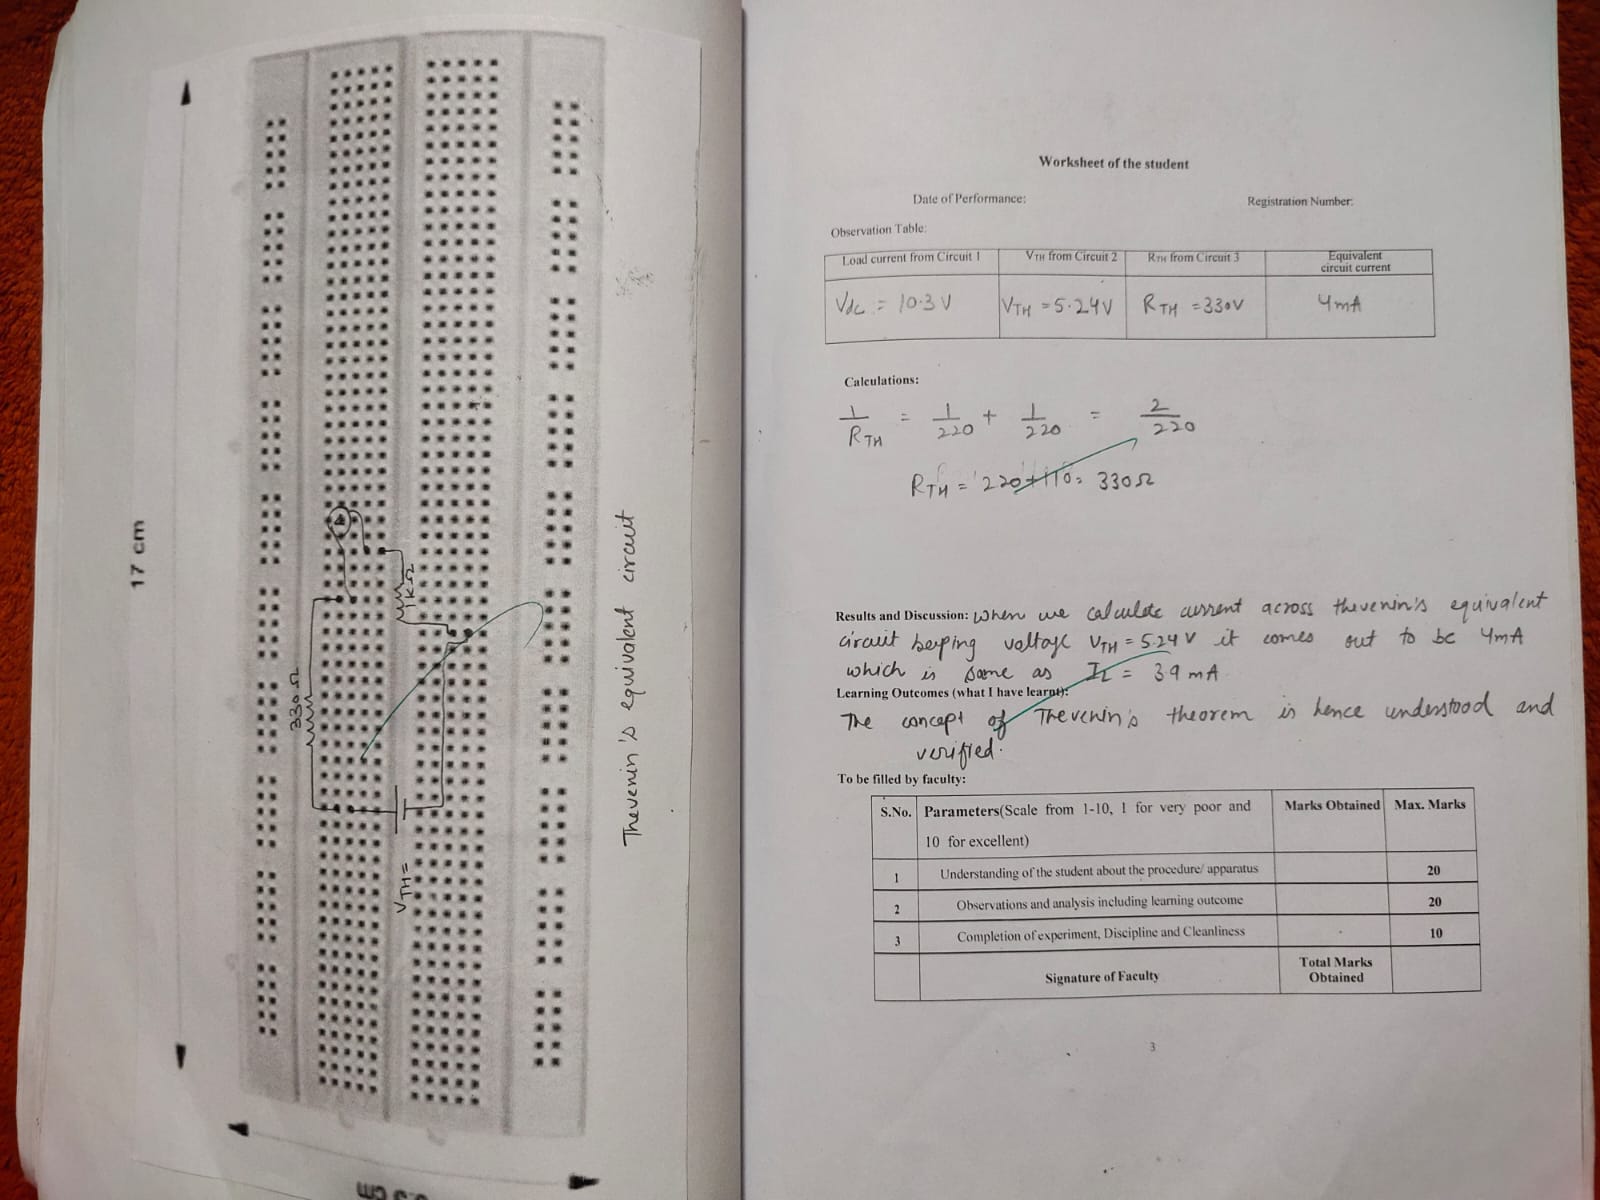 17 cm
330Ω
1KΩ
A
VTH =
Thevenin's equivalent circuit
Worksheet of the student
Date of Performance: Registration Number:
Observation Table:
Load current from Circuit 1 VTH from Circuit 2 RTH from Circuit 3 Equivalent circuit current
Vdc = 10.3 V VTH = 5.24V RTH = 330V 4mA
Calculations:
1/RTH = 1/220 + 1/220 = 2/220
RTH = 220+110= 330Ω
Results and Discussion: When we calculate current across thevenin's equivalent
circuit keeping voltage VTH = 5.24 V it comes out to be 4mA
which is same as IL = 39 mA
Learning Outcomes (what I have learnt):
The concept of Thevenin's theorem is hence understood and
verified.
To be filled by faculty:
S.No. Parameters(Scale from 1-10, 1 for very poor and 10 for excellent) Marks Obtained Max. Marks
1 Understanding of the student about the procedure/ apparatus 20
2 Observations and analysis including learning outcome 20
3 Completion of experiment, Discipline and Cleanliness 10
Signature of Faculty Total Marks Obtained
3